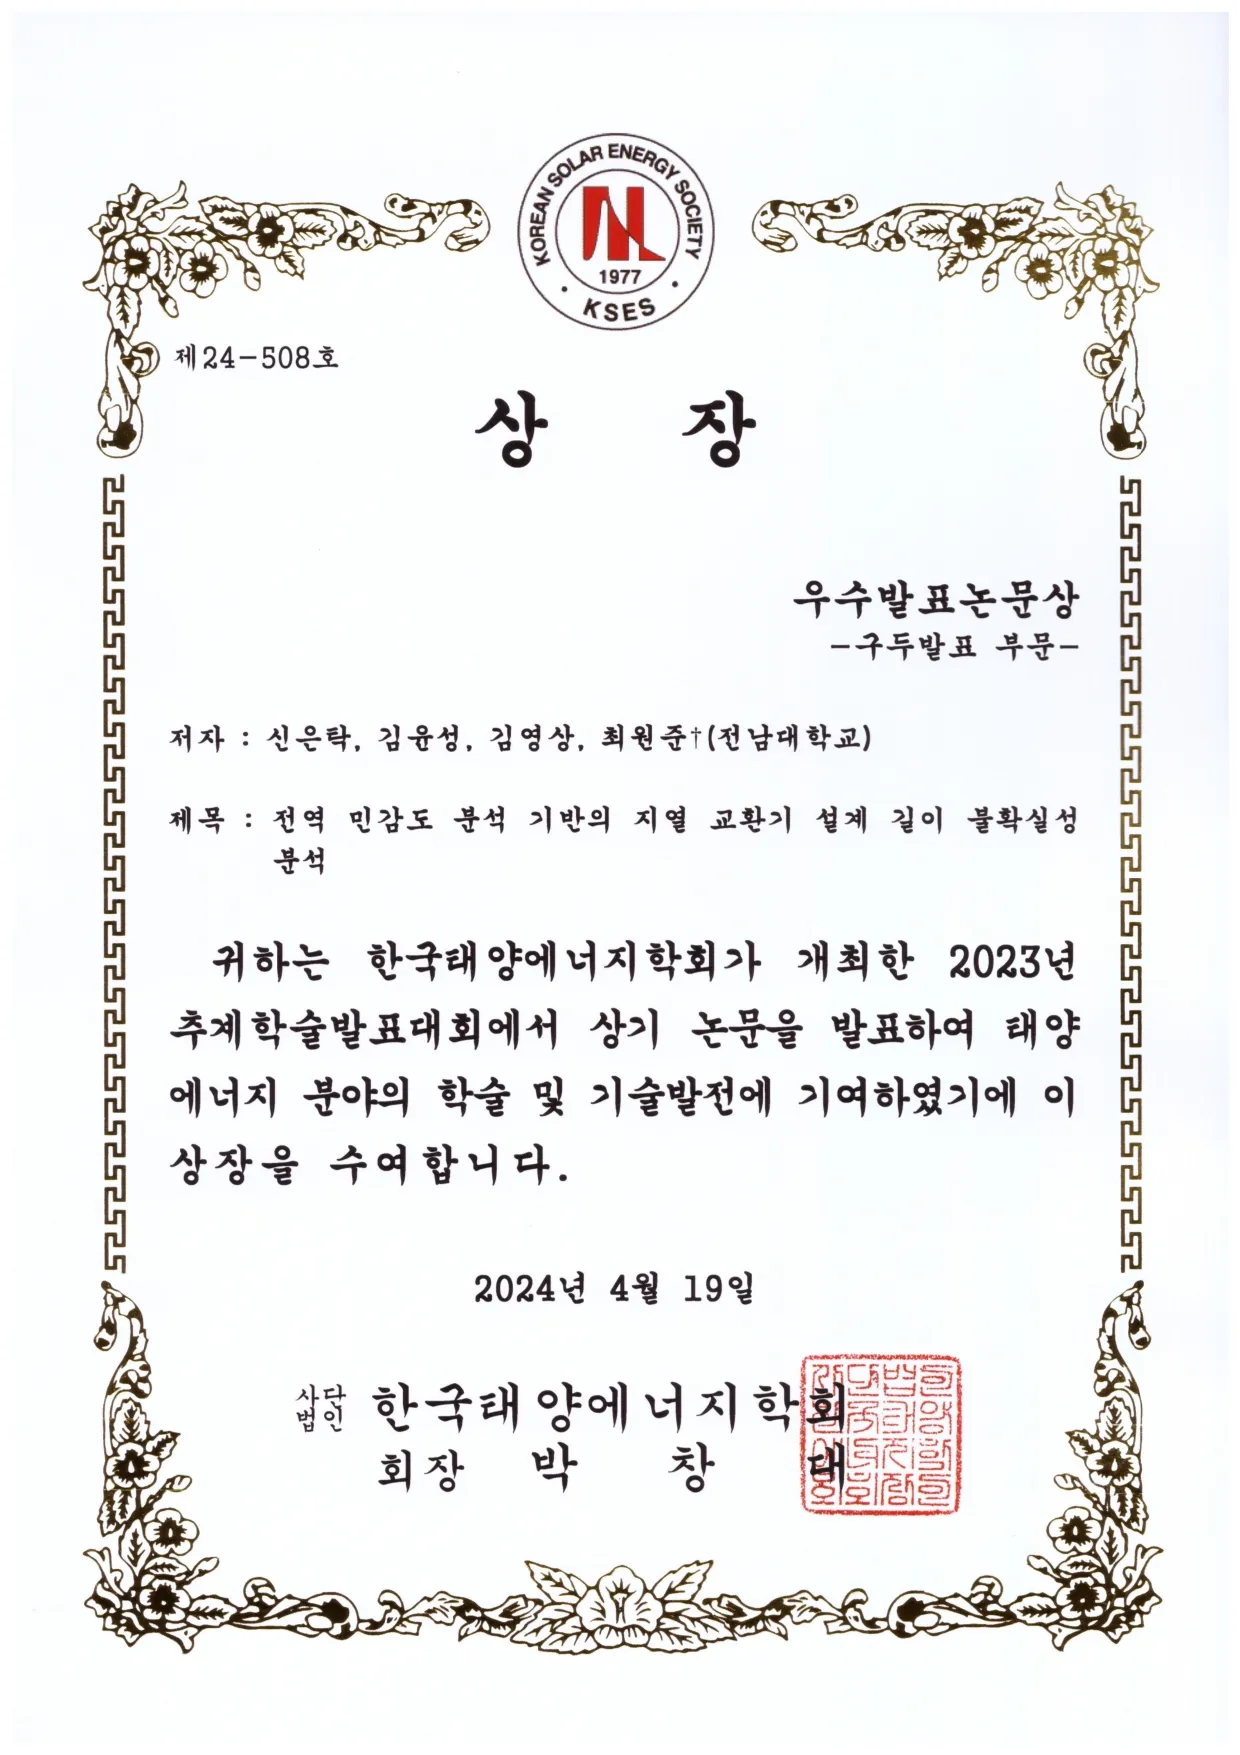 KOREAN SOLAR ENERGY SOCIETY
1977
KSES
제24-508호
상 장
우수발표논문상
-구두발표 부문-
저자 : 신은탁, 김윤성, 김영상, 최원준†(전남대학교)
제목 : 전역 민감도 분석 기반의 지열 교환기 설계 길이 불확실성
분석
귀하는 한국태양에너지학회가 개최한 2023년
추계학술발표대회에서 상기 논문을 발표하여 태양
에너지 분야의 학술 및 기술발전에 기여하였기에 이
상장을 수여합니다.
2024년 4월 19일
사단법인 한국태양에너지학회
회장 박 창 대